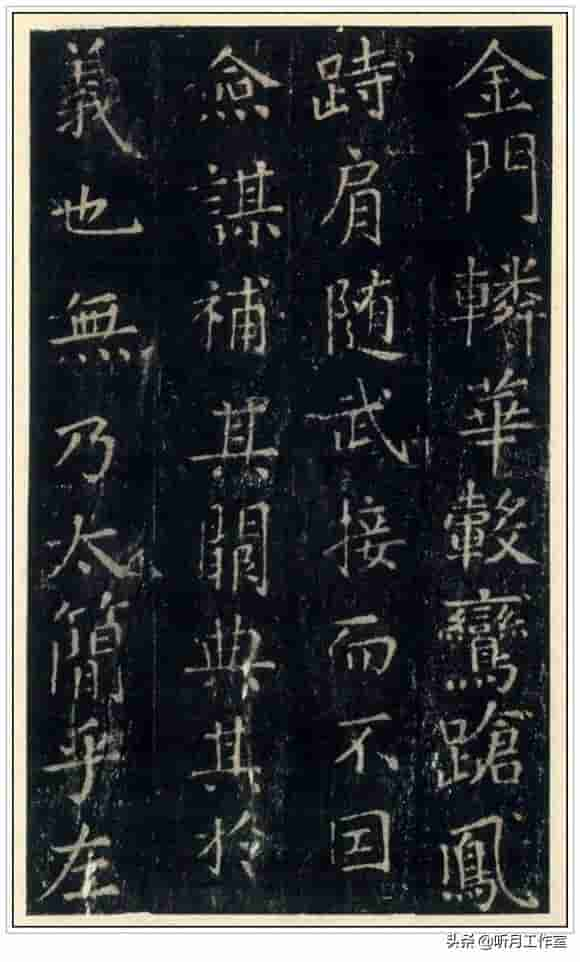 金門轔華轂鸞蹌鳳
跱肩随武接而不囙
僉謀補其闕典其扵
義也無乃太簡乎左
头条 @听月工作室